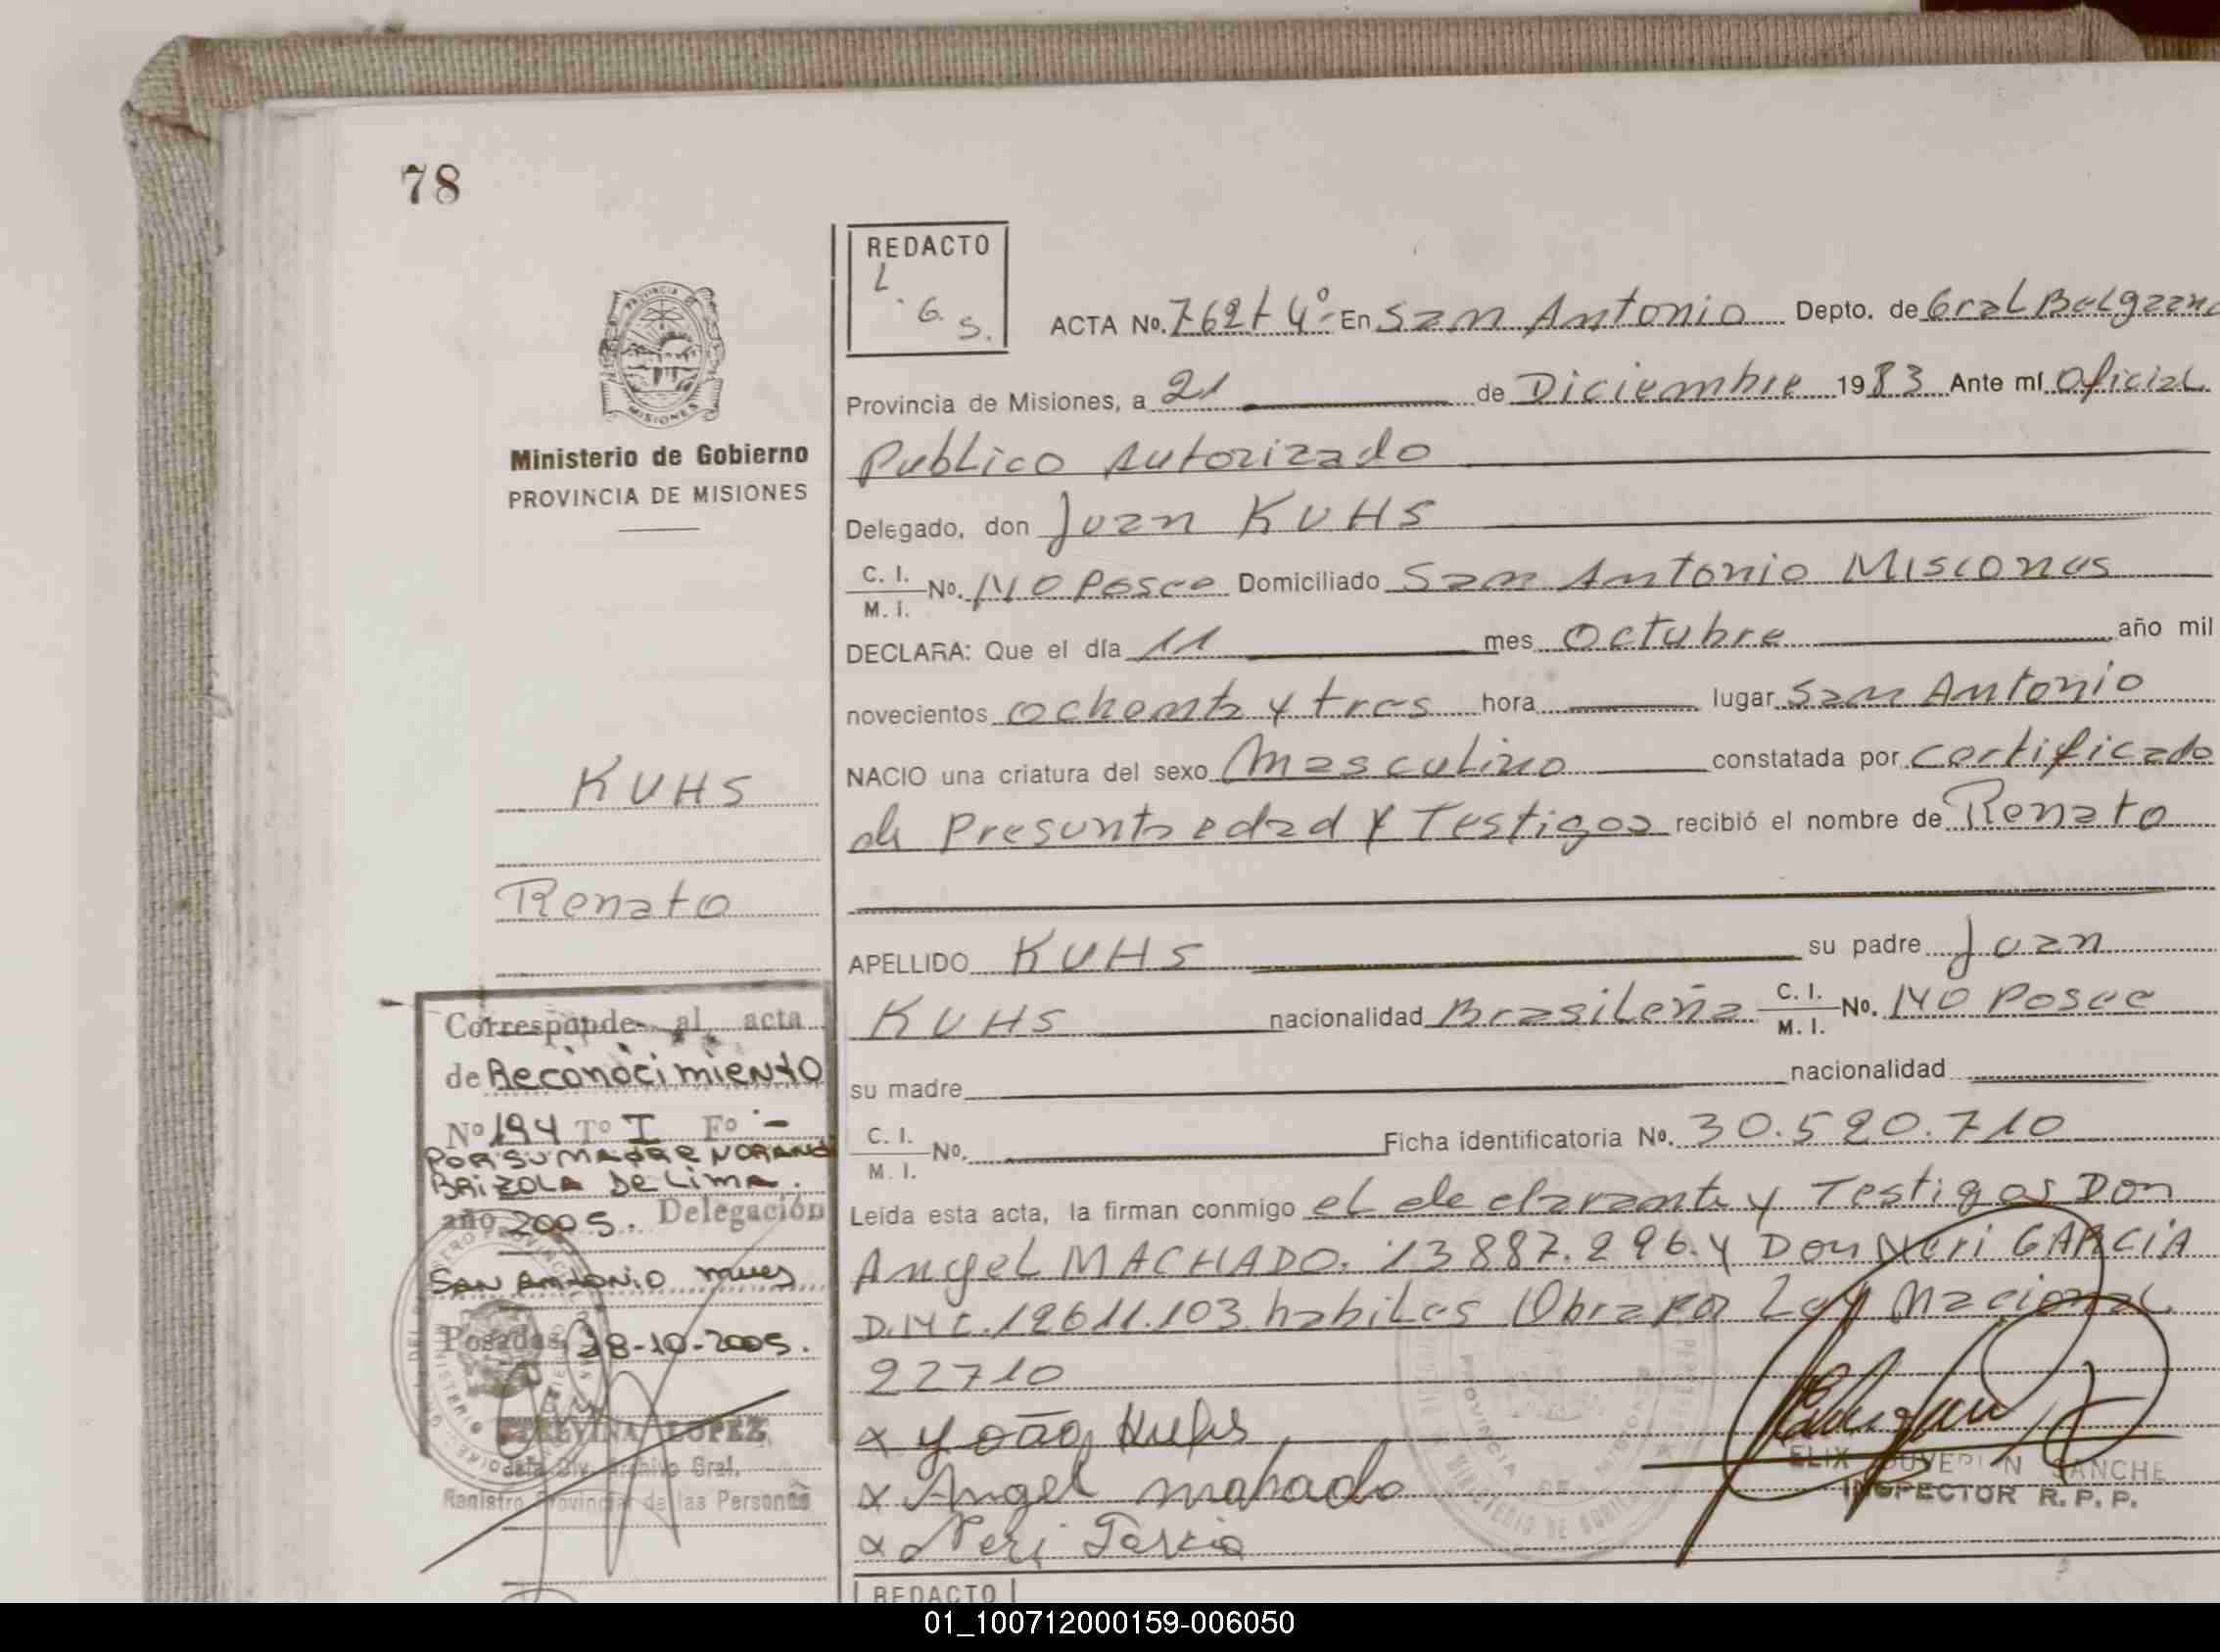 78
REDACTO
L.
G.
S.
ACTA No. 762 t 4º En San Antonio Depto. de Gral Belgrano
Provincia de Misiones, a 21 de Diciembre 1983 Ante mí Oficial
Publico Autorizado
Delegado, don Juan KUHS
C. I.
M. I. No. NO Posee Domiciliado San Antonio Misiones
DECLARA: Que el día 11 mes Octubre año mil
novecientos ochenta y tres hora lugar San Antonio
NACIO una criatura del sexo Masculino constatada por Certificado
de Presunta edad y Testigos recibió el nombre de Renato
APELLIDO KUHS su padre Juan
KUHS nacionalidad Brasileña C. I.
M. I. No. NO Posee
su madre nacionalidad
C. I.
M. I. No. Ficha identificatoria No. 30.520.710
Leída esta acta, la firman conmigo el declarante y Testigos Don
Angel MACHADO. 13887.296. y Don Neri GARCIA
D.N.I. 12611.103 habiles Obra por Ley Nacional
22710
x João Kuhs
x Angel mahado
x Neri Garcia
INSPECTOR R. P. P.
PROVINCIA DE MISIONES
Ministerio de Gobierno
PROVINCIA DE MISIONES
KUHS
Renato
Corresponde al acta
de Reconocimiento
Nº 194 Tº I Fº -
POR SU MADRE NORANDI
BRIZOLA DE LIMA.
año 2005. Delegación
SAN ANTONIO mnes
Posadas, 28-10-2005.
LOPEZ
Div. Archivo Gral.
Registro Provincial de las Personas
REDACTO
01_100712000159-006050